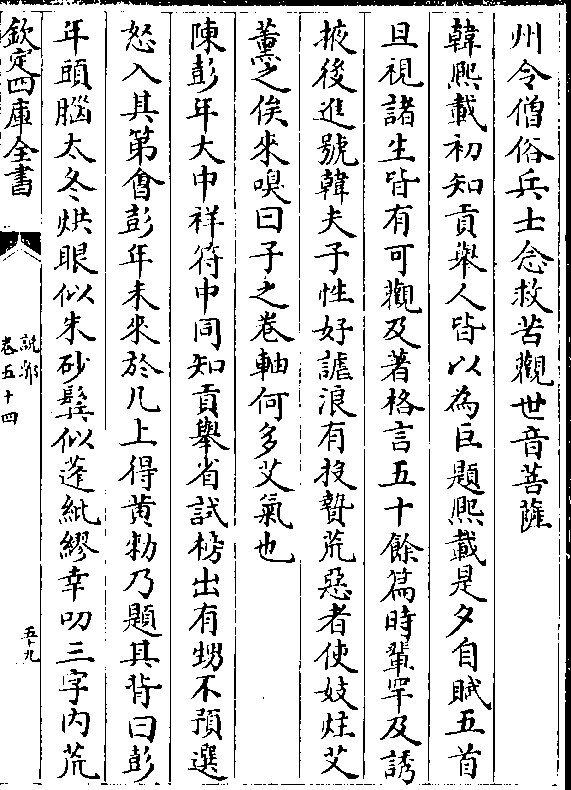 州令僧俗兵士念救苦觀世音菩薩
韓熙載初知貢舉人皆以為巨題熙載是夕自賦五首
旦視諸生皆有可觀及著格言五十餘篇時輩罕及誘
掖後進號韓夫子性好謔浪有投贄荒惡者使妓炷艾
薰之俟來嗅曰子之卷軸何多艾氣也
陳彭年大中祥符中同知貢舉省試榜出有甥不預選
怒入其第會彭年未來於几上得黃敕乃題其背曰彭
年頭腦太冬烘眼似朱砂鬂似蓬紕繆幸叨三字內荒
欽定四庫全書
說郛
卷五十四
五十九